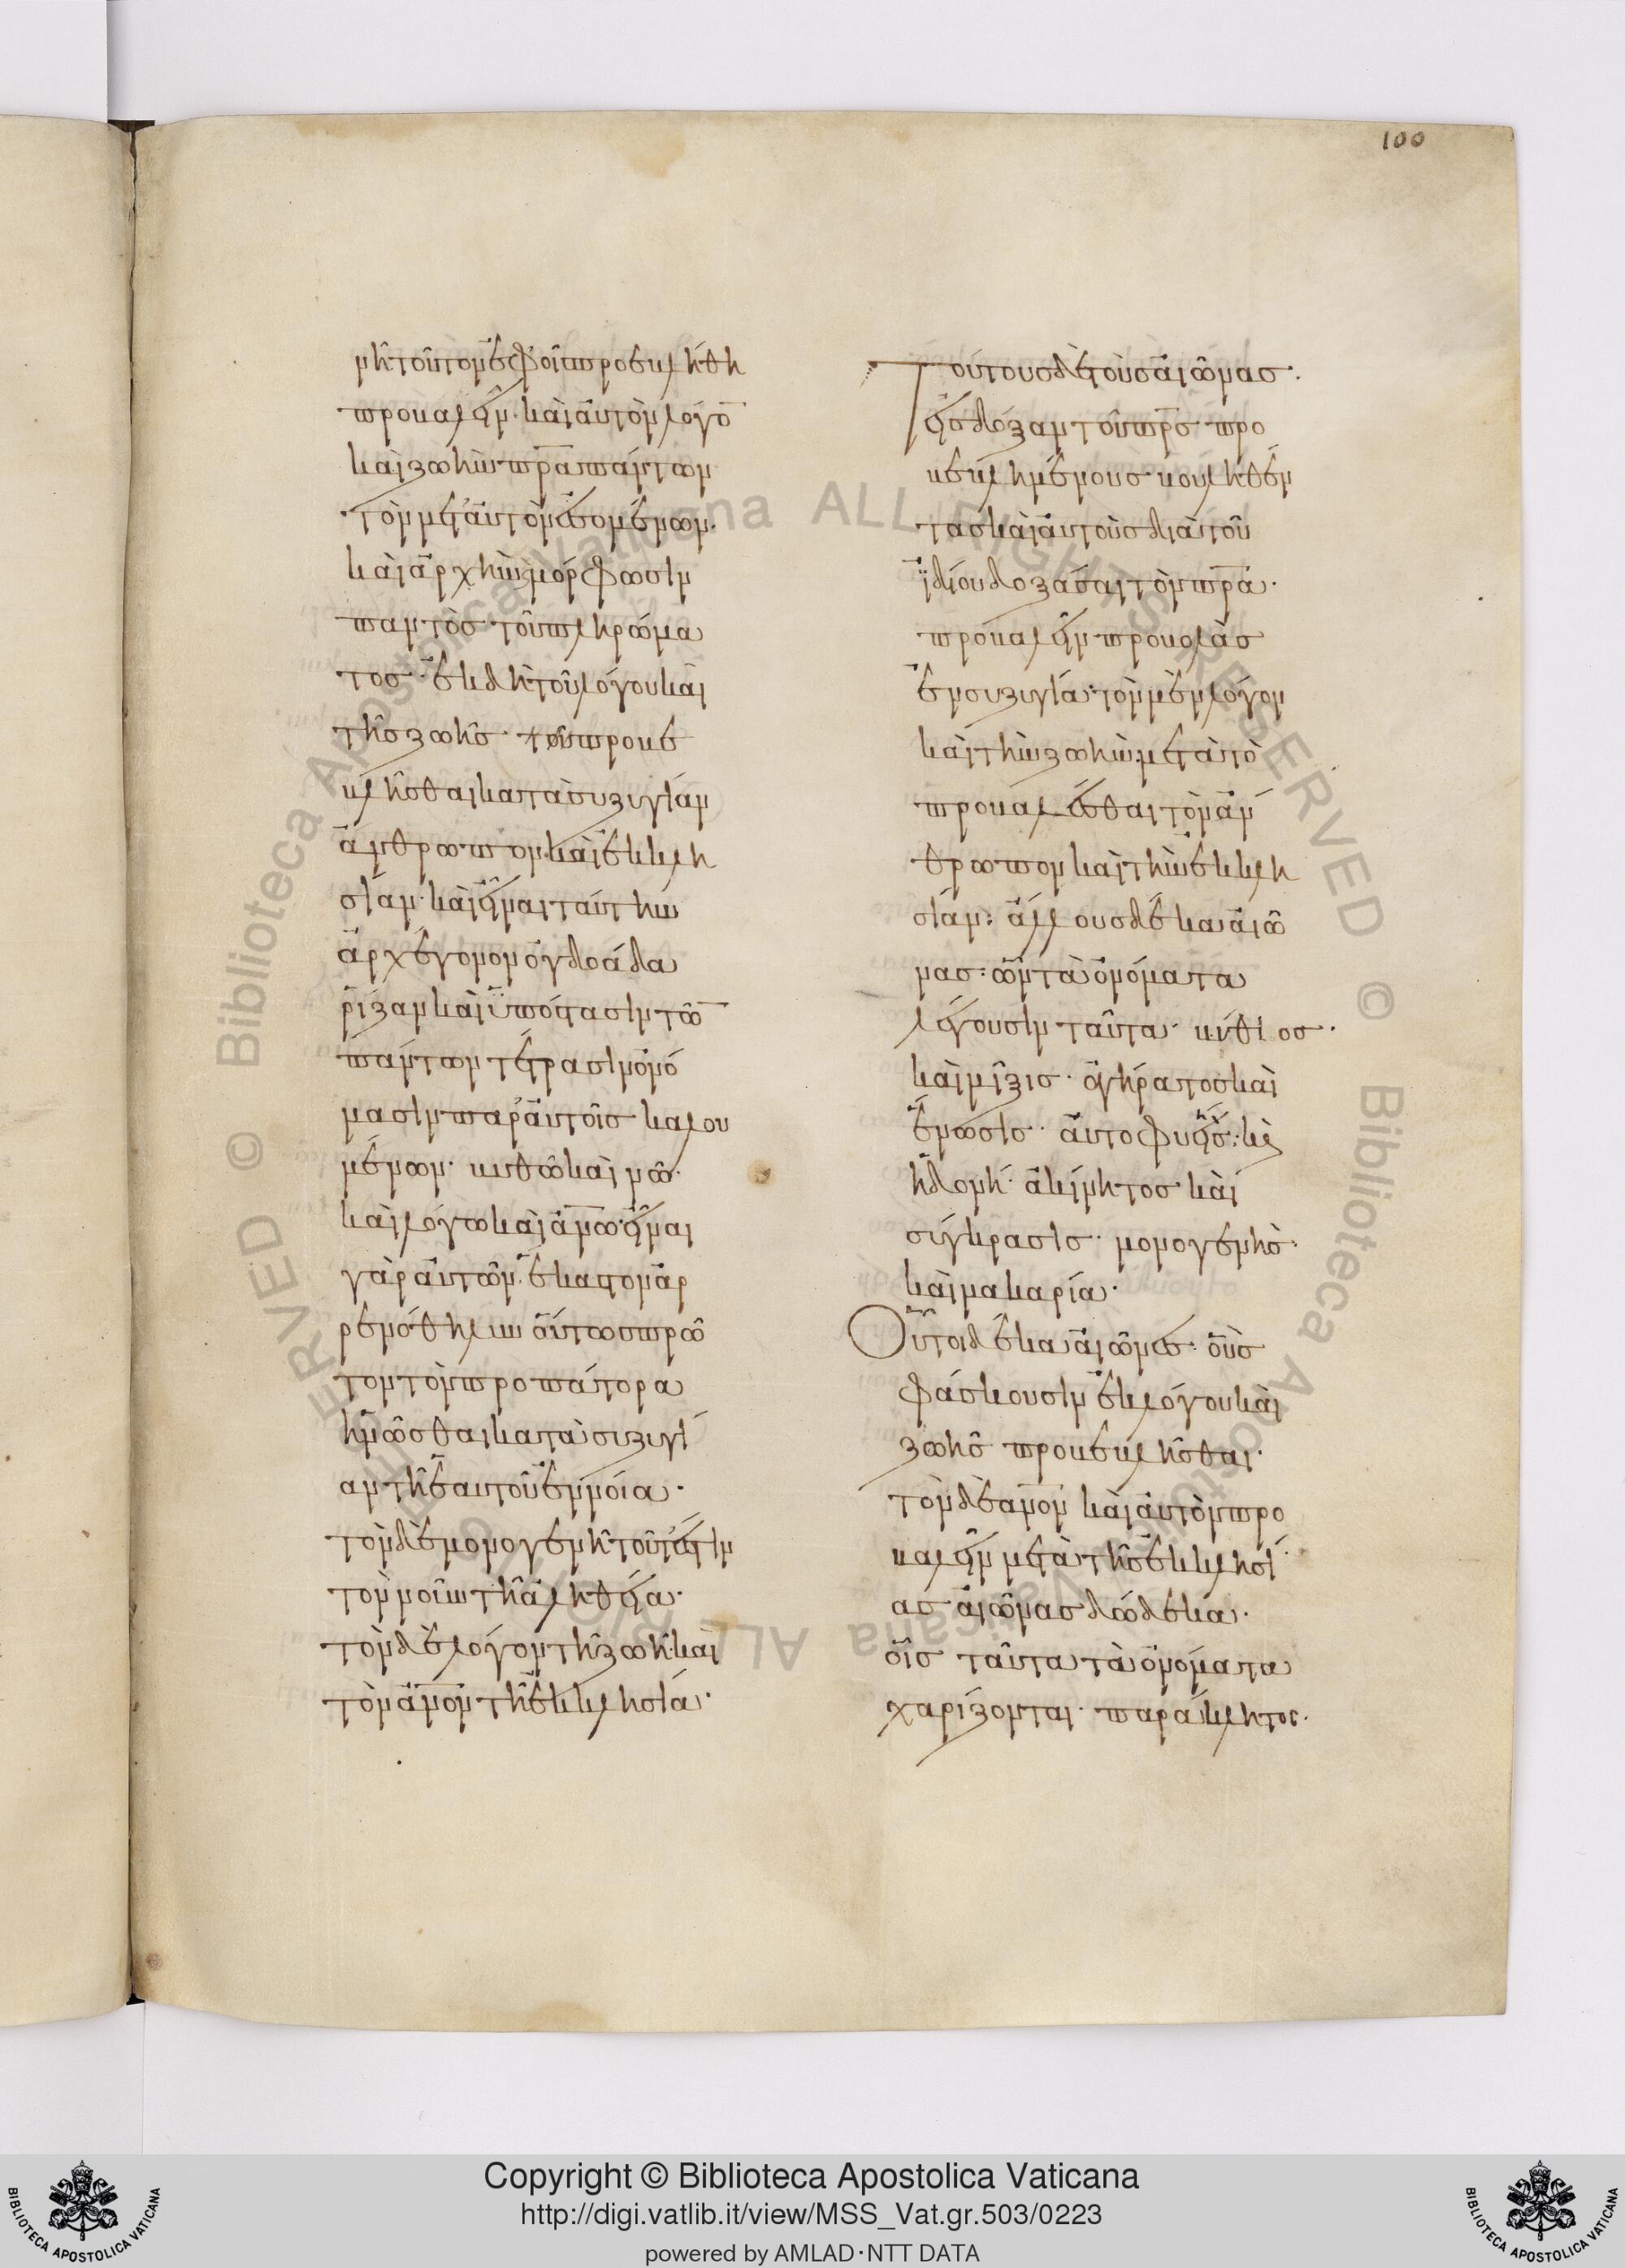 100
νῆ τοῦτον ἐφ' οἷς προεκλήθη
προβαλεῖν καὶ αὐτὸν λόγο̅
καὶ ζωὴν πρ̅α πάντων
τὸν μετ' αὐτὸν ἐσομένων·
καὶ ἀρχὴν μόρφωσιν
παντὸς τοῦ πληρώμα
τος· ἐκ δὴ τοῦ λόγου καὶ
τῆς ζωῆς
βλῆσθαι κατὰ συζυγίαν
ἄνθρωπον καὶ ἐκκλη
σίαν· καὶ εἶναι ταύτην
ἀρχέγονον ὀγδοάδα
ῥίζαν καὶ ὑπόστασιν τῶ̅
πάντων τέτρασιν ὀνό
μασιν παρ' αὐτοῖς καλου
μένων· βυθῶ καὶ νῶ·
καὶ λόγω καὶ α̅νω· εἶναι
γὰρ αὐτῶν ἕκαστον ἀρ
ρενόθηλυν οὕτως πρῶ
τον τὸν προπάτορα
ἡνῶσθαι κατὰ συζυγί
αν τῆ ἑαυτοῦ ἐννοία·
τὸν δὲ μονογενῆ τοῦτέστιν
τὸν νοῦν τῆ ἀληθεία·
τὸν δὲ λόγον τῆ ζωῆ· καὶ
τὸν α̅νον τῆ ἐκκλησία·
Τούτους δὲ τοὺς αἰῶνας·
εἰς δόξαν τοῦ πρ̅ς προ
βεβλημένους βουληθέν
τας καὶ αὐτοὺς διὰ τοῦ
ἰδίου δοξάσαι τὸν πρ̅α·
προβαλεῖν προβολὰς
ἐν συζυγία· τὸν μὲν λόγον
καὶ τὴν ζωὴν μετὰ τὸ
προβαλέσθαι τὸν ἄν
θρωπον καὶ τὴν ἐκκλη
σίαν· ἄλλους δέκα αἰῶ
νας· ὧν τὰ ὀνόματα
λέγουσιν ταῦτα· βύθιος·
καὶ μῖξις· ἀγήρατος καὶ
ἕνωσις· αὐτοφυής· κ̀
ἡδονή· ἀκίνητος καὶ
σύγκρασις· μονογενὴς·
καὶ μακαρία·
Οὗτοι δέκα αἰῶνες· οὓς
φάσκουσιν ἐκ λόγου καὶ
ζωῆς προβεβλῆσθαι·
τὸν δὲ α̅νον καὶ αὐτὸν προ
βαλεῖν μετὰ τῆς ἐκκλησί
ας αἰῶνας δώδεκα·
οἷς ταῦτα τὰ ὀνόματα
χαρίζονται· παράκλητος·
Copyright © Biblioteca Apostolica Vaticana
http://digi.vatlib.it/view/MSS_Vat.gr.503/0223
powered by AMLAD·NTT DATA
BIBLIOTECA APOSTOLICA VATICANA
BIBLIOTECA APOSTOLICA VATICANA